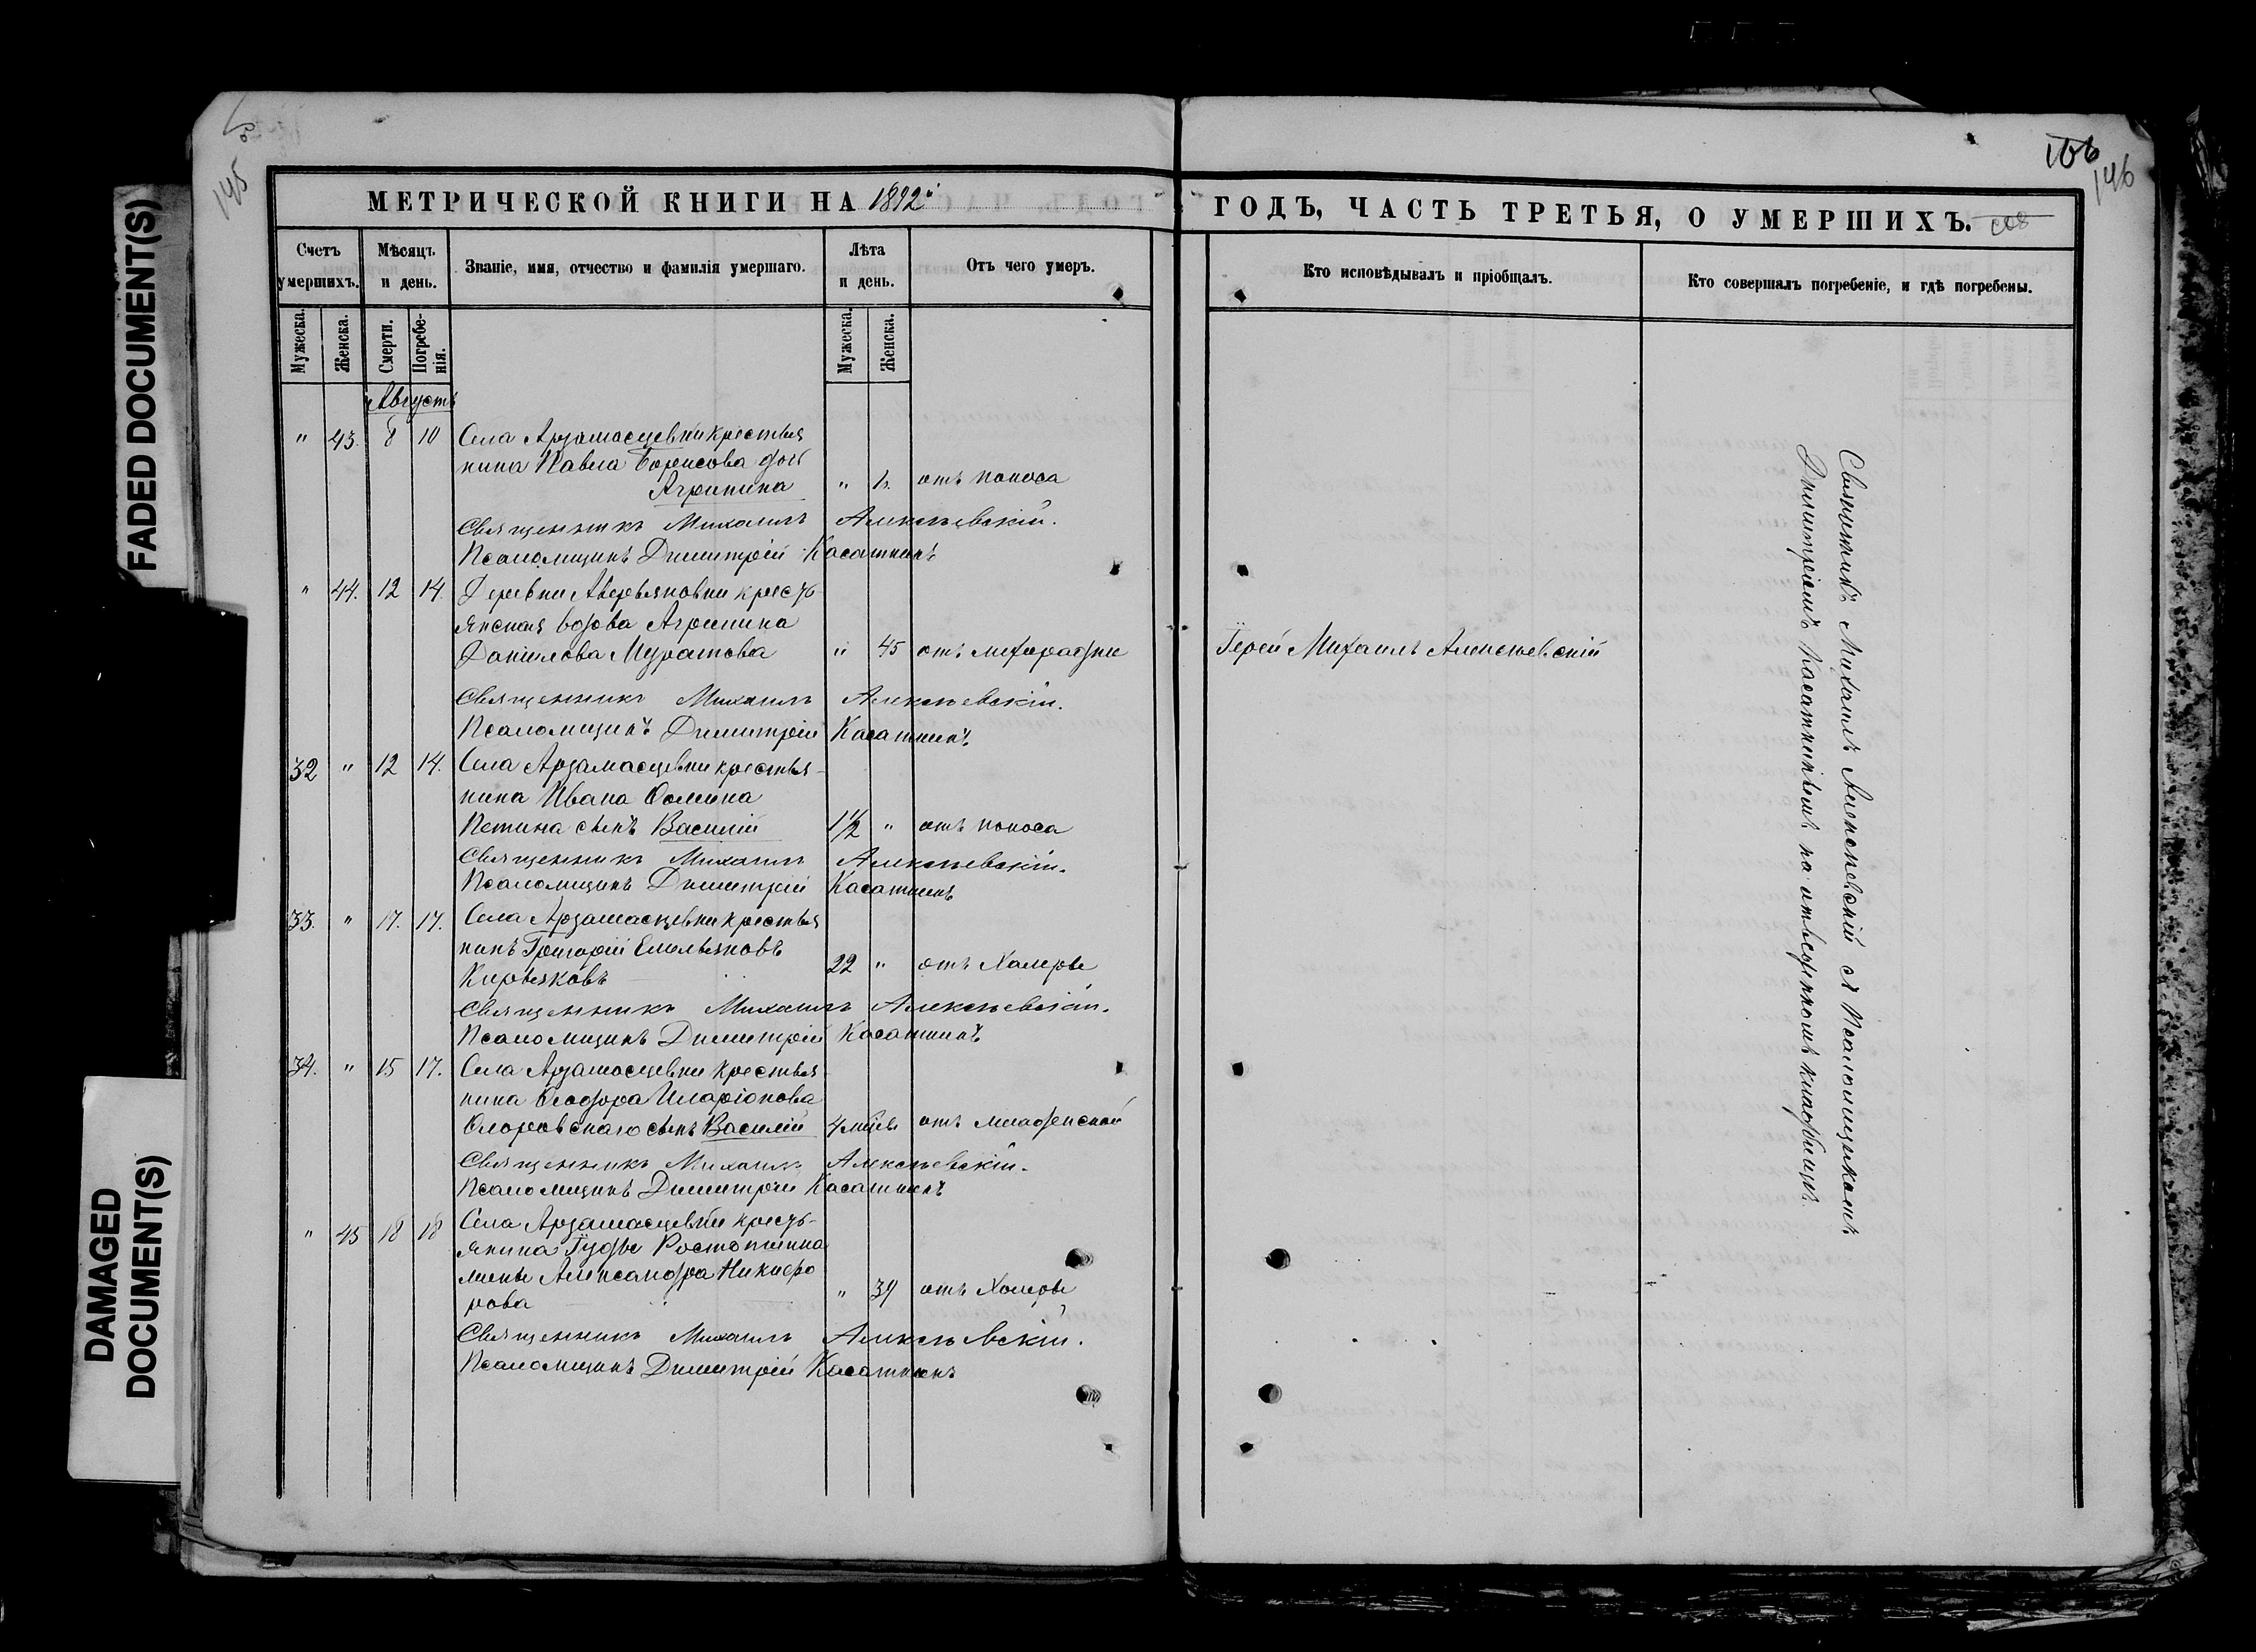 FADED DOCUMENT(S)
DAMAGED
DOCUMENT(S)
145
106
146
МЕТРИЧЕСКОЙ КНИГИ НА 1892й
ГОДЪ, ЧАСТЬ ТРЕТЬЯ, О УМЕРШИХЪ.
Счетъ умершихъ.
Мѣсяцъ и день.
Званіе, имя, отчество и фамилія умершаго.
Лѣта и день.
Отъ чего умеръ.
Кто исповѣдывалъ и пріобщалъ.
Кто совершалъ погребеніе, и гдѣ погребены.
Мужеска.
Женска.
Смерти.
Погребе-
нія.
Мужеска.
Женска.
Августъ
" 43. 8 10 Села Арзамасцевки крестья
нина Павла Борисова дочь
Агрипина " отъ поноса
Священникъ Михаилъ Алексѣевскій.
Псаломщикъ Димитрій Касаткинъ
" 44. 12 14. Деревни Аверьяновки кресть
янская вдова Агрипина
Даніилова Муратова " 45 отъ лихорадки Іерей Михаилъ Алексѣевскій
Священникъ Михаилъ Алексѣевскій.
Псаломщикъ Димитрій Касаткинъ
32 " 12 14. Села Арзамасцевки крестья-
нина Ивана Ѳомина
Петина сынъ Василій 1½ " отъ поноса
Священникъ Михаилъ Алексѣевскій.
Псаломщикъ Димитрій Касаткинъ
33. " 17. 17. Села Арзамасцевки крестья
нинъ Григорій Емельяновъ
Кирьяковъ 22 " отъ Холеры
Священникъ Михаилъ Алексѣевскій.
Псаломщикъ Димитрій Касаткинъ
34. " 15 17. Села Арзамасцевки крестья
нина Ѳеодора Иларіонова
сынъ Василій 4 мѣс. отъ младенской
Священникъ Михаилъ Алексѣевскій.
Псаломщикъ Димитрій Касаткинъ
" 45 18 18 Села Арзамасцевки кресть-
янина Гуды Ростопкина
жена Александра Никифо
рова " 39 отъ Холеры
Священникъ Михаилъ Алексѣевскій.
Псаломщикъ Димитрій Касаткинъ
Священникъ Михаилъ Алексѣевскій съ Псаломщикомъ
Димитріемъ Касаткинымъ на отведенномъ кладбищѣ.